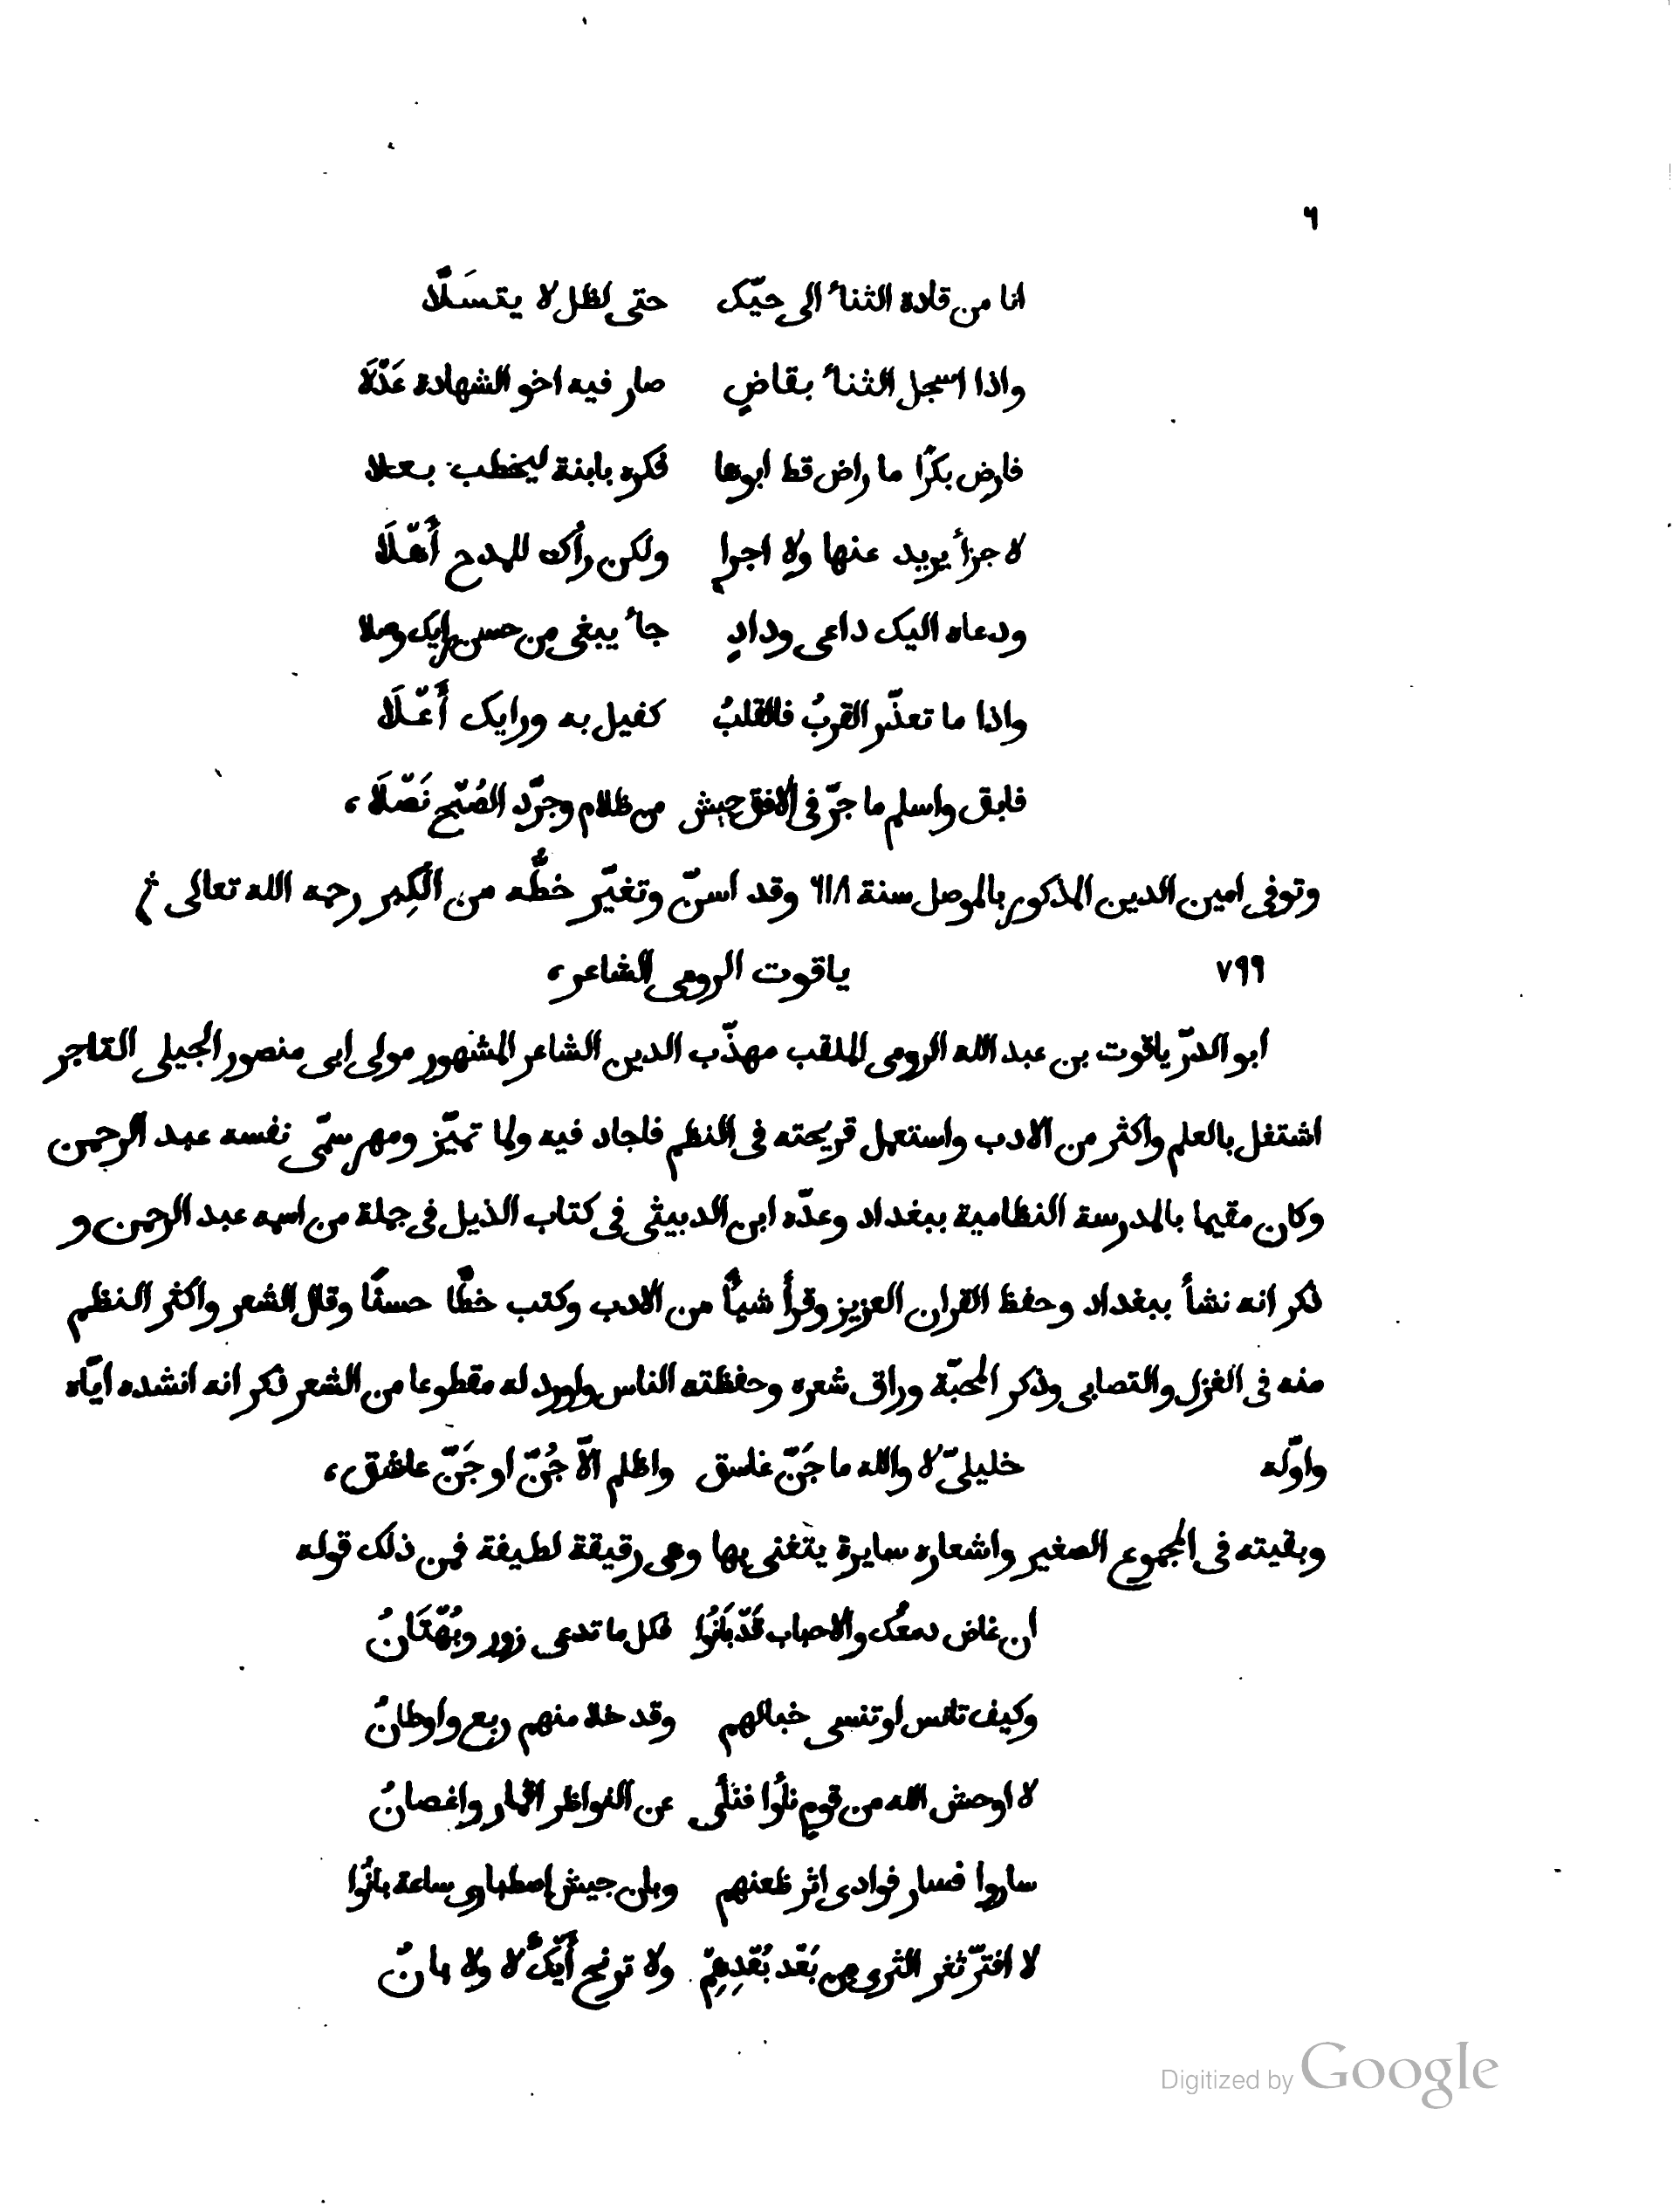 ٦
انا من قادة الثناء الى حبّك حتى لظل لا يتسَلَّا
واذا اسجل الثناء بقاضٍ صار فيه اخو الشهادة عَدْلَا
فارض بكرًا ما راض قط ابوها فكره بابنة ليخطب بعلا
لا جزأ يريد عنها ولا اجرا ولكن رأك للمدح أَهْلَا
ودعاه اليك داعى ودادٍ جاء يبغى من حسن رايك وصلا
واذا ما تعذّر القربُ فالقلبُ كفيل به ورايك أَعْلَا
فابق واسلم ما جرّ فى الافق جيش من ظلام وجرّد الصُبْح نَصْلَا ،
وتوفى امين الدين المذكور بالموصل سنة ٦١٨ وقد اسنّ وتغيّر خطُّه من الكِبر رحمه الله تعالى
٧٩٩ ياقوت الرومى الشاعر ،
ابو الدرّ ياقوت بن عبد الله الرومى الملقب مهذّب الدين الشاعر المشهور مولى ابى منصور الجيلى التاجر
اشتغل بالعلم واكثر من الادب واستعمل قريحته فى النظم فاجاد فيه ولما تميّز ومهر سمّى نفسه عبد الرحمن
وكان مقيما بالمدرسة النظامية ببغداد وعدّه ابن الدبيثى فى كتاب الذيل فى جملة من اسمه عبد الرحمن و
ذكر انه نشأ ببغداد وحفظ القران العزيز وقرأ شيأً من الادب وكتب خطًّا حسنًا وقال الشعر واكثر النظم
منه فى الغزل والتصابى وذكر المحبّة وراق شعره وحفظته الناس واورد له مقطوعا من الشعر ذكر انه انشده ايّاه
واوّله خليلىّ لا والله ما جَنّ غاسق واظلم الّا جُنّ او جَنّ عاشق ،
وبقيته فى المجموع الصغير واشعاره سايرة يتغنى بها وهى رقيقة لطيفة فمن ذلك قوله
ان غاض دمعُك والاحباب قَدْ بَانُوا فكل ما تدعى زور وبُهْتَانُ
وكيف تانس او تنسى خيالهم وقد خلا منهم ربع واوطانُ
لا اوحش الله من قوم نأوا فنأى عن النواظر اقمار واغصانُ
ساروا فسار فوادى اثر ظعنهم وبان جيش اصطبارى ساعة بانُوا
لا افترّ ثغر الثرى من بَعْد بُعْدِهِمْ ولا ترنح أَيْكٌ لا ولا بانُ
Digitized by Google